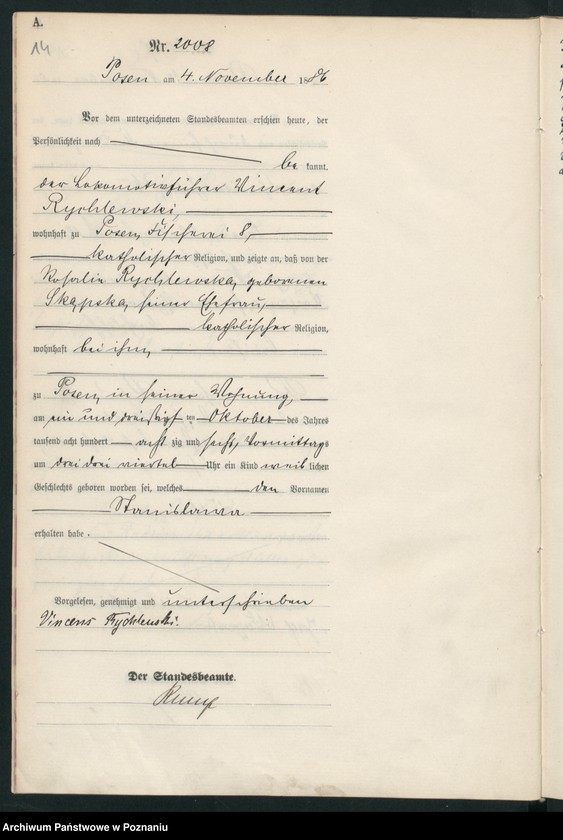 A.
14
Nr. 2008
Posen am 4. November 1886
Vor dem unterzeichneten Standesbeamten erschien heute, der
Persönlichkeit nach
be kannt,
der Lokomotivführer Vincent
Rychlewski,
wohnhaft zu Posen, Fischerei 8,
katholischer Religion, und zeigte an, daß von der
Rosalie Rychlewska, geborenen
Skąpska, seiner Ehefrau,
katholischer Religion,
wohnhaft bei ihm,
zu Posen, in seiner Wohnung,
am ein und dreißigsten Oktober des Jahres
tausend acht hundert acht zig und sechs, Vormittags
um drei drei viertel Uhr ein Kind weib lichen
Geschlechts geboren worden sei, welches den Vornamen
Stanislawa
erhalten habe.
Vorgelesen, genehmigt und unterschrieben
Vincens Rychlewski.
Der Standesbeamte.
Archiwum Państwowe w Poznaniu